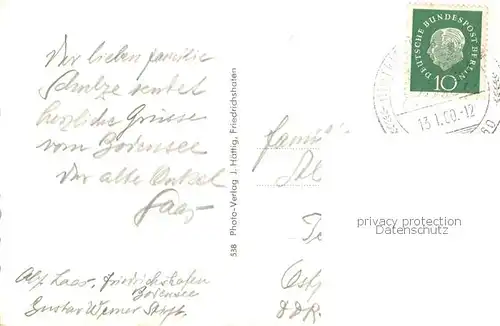 Der lieben Familie
Schulze sendet
herzliche Grüsse
vom Bodensee
der alte Onkel
Laas
Alf. Laas, Friedrichshafen
Bodensee
Gustav Werner Stift.
538 Photo-Verlag J. Hättig, Friedrichshafen
DEUTSCHE BUNDESPOST BERLIN
10
13.1.60.-12
Famil
privacy protection
Datenschutz
DDR.